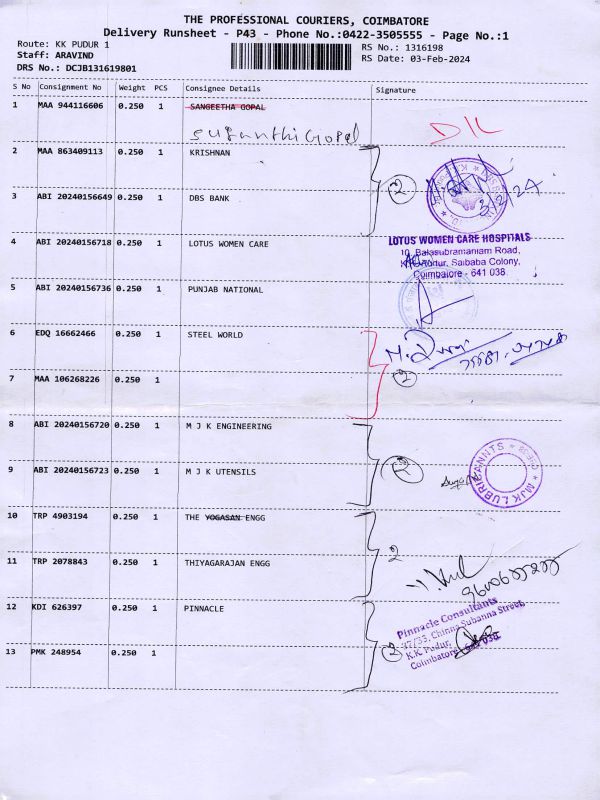 THE PROFESSIONAL COURIERS, COIMBATORE
Delivery Runsheet - P43 - Phone No.:0422-3505555 - Page No.:1
Route: KK PUDUR 1
Staff: ARAVIND
DRS No.: DCJB131619801
RS No.: 1316198
RS Date: 03-Feb-2024
S No Consignment No Weight PCS Consignee Details Signature
1 MAA 944116606 0.250 1 SANGEETHA GOPAL
Suganthi Gopal
2 MAA 863409113 0.250 1 KRISHNAN
2
3/2/24
3 ABI 20240156649 0.250 1 DBS BANK
4 ABI 20240156718 0.250 1 LOTUS WOMEN CARE
LOTUS WOMEN CARE HOSPITALS
10, Balasubramaniam Road,
K.K. Pudur, Saibaba Colony,
Coimbatore - 641 038.
5 ABI 20240156736 0.250 1 PUNJAB NATIONAL
6 EDQ 16662466 0.250 1 STEEL WORLD
2
7 MAA 106268226 0.250 1
8 ABI 20240156720 0.250 1 M J K ENGINEERING
2
9 ABI 20240156723 0.250 1 M J K UTENSILS
MJK LUBRICANNTS
10 TRP 4903194 0.250 1 THE YOGASAN ENGG
2
11 TRP 2078843 0.250 1 THIYAGARAJAN ENGG
12 KDI 626397 0.250 1 PINNACLE
Pinnacle Consultants
47/33, Chinna Subanna Street,
K.K. Pudur,
Coimbatore - 641 038
2
13 PMK 248954 0.250 1